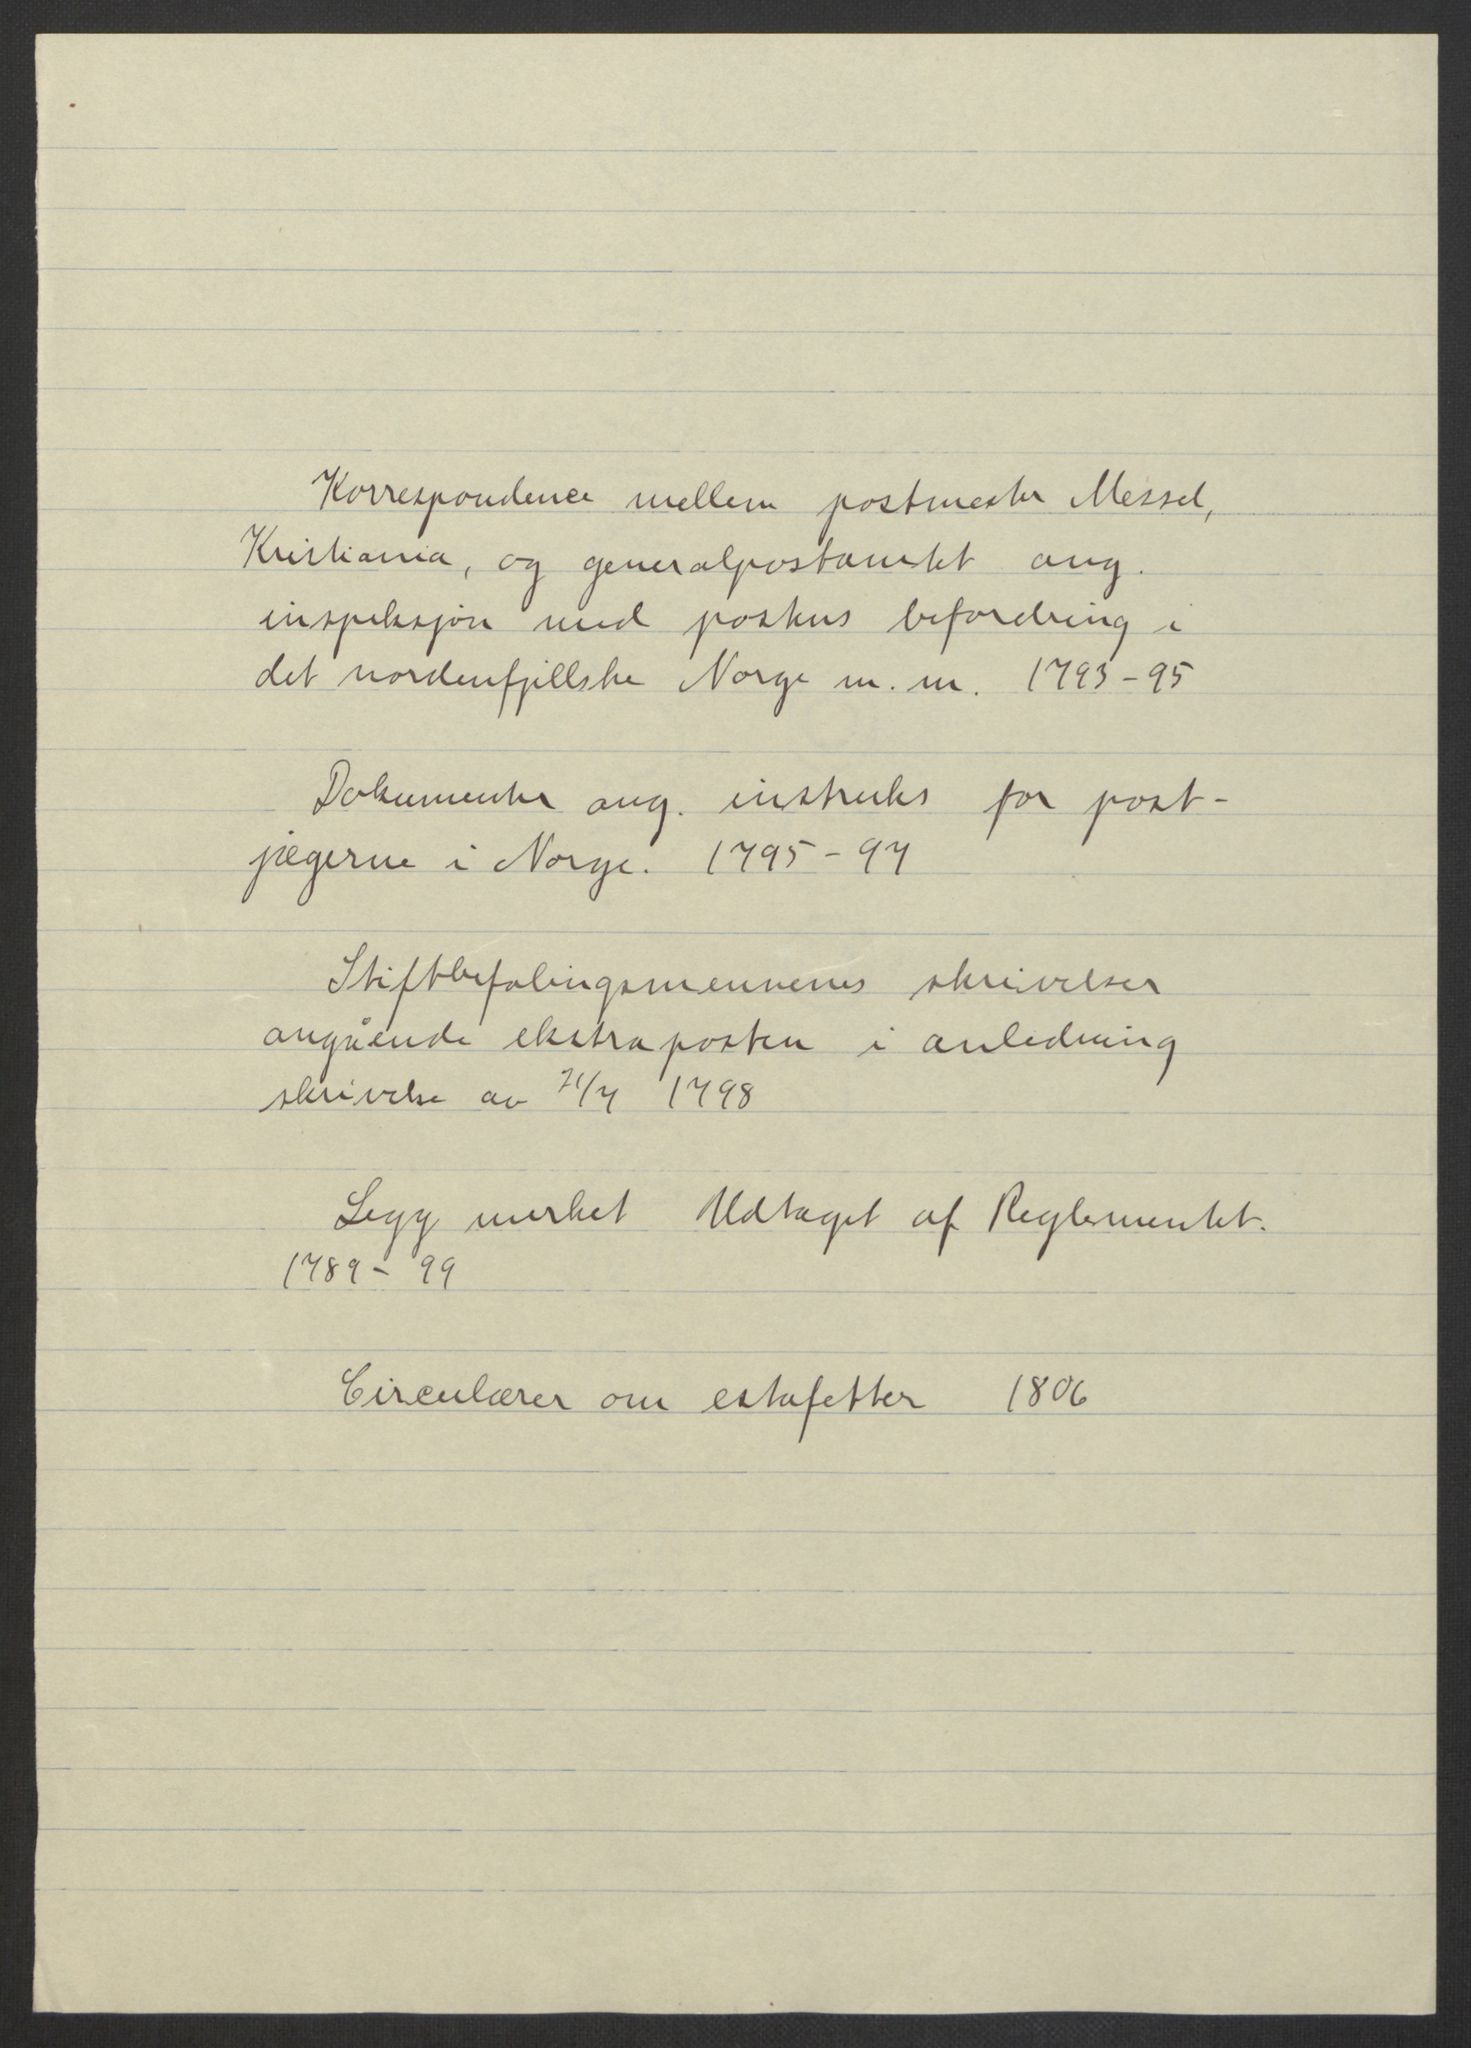 Korrespondence mellem postmester Messel,
Kristiania, og generalpostamtet ang.
inspeksjon med postens befordring i
det nordenfjellske Norge m. m. 1793-95
Dokumenter ang. instruks for post-
jægerne i Norge. 1795-97
Stiftbefalingsmennenes skrivelser
angående ekstraposten i anledning
skrivelse av 21/7 1798
Legg merket Udtaget af Reglementet.
1789-99
Circulærer om estafetter 1806